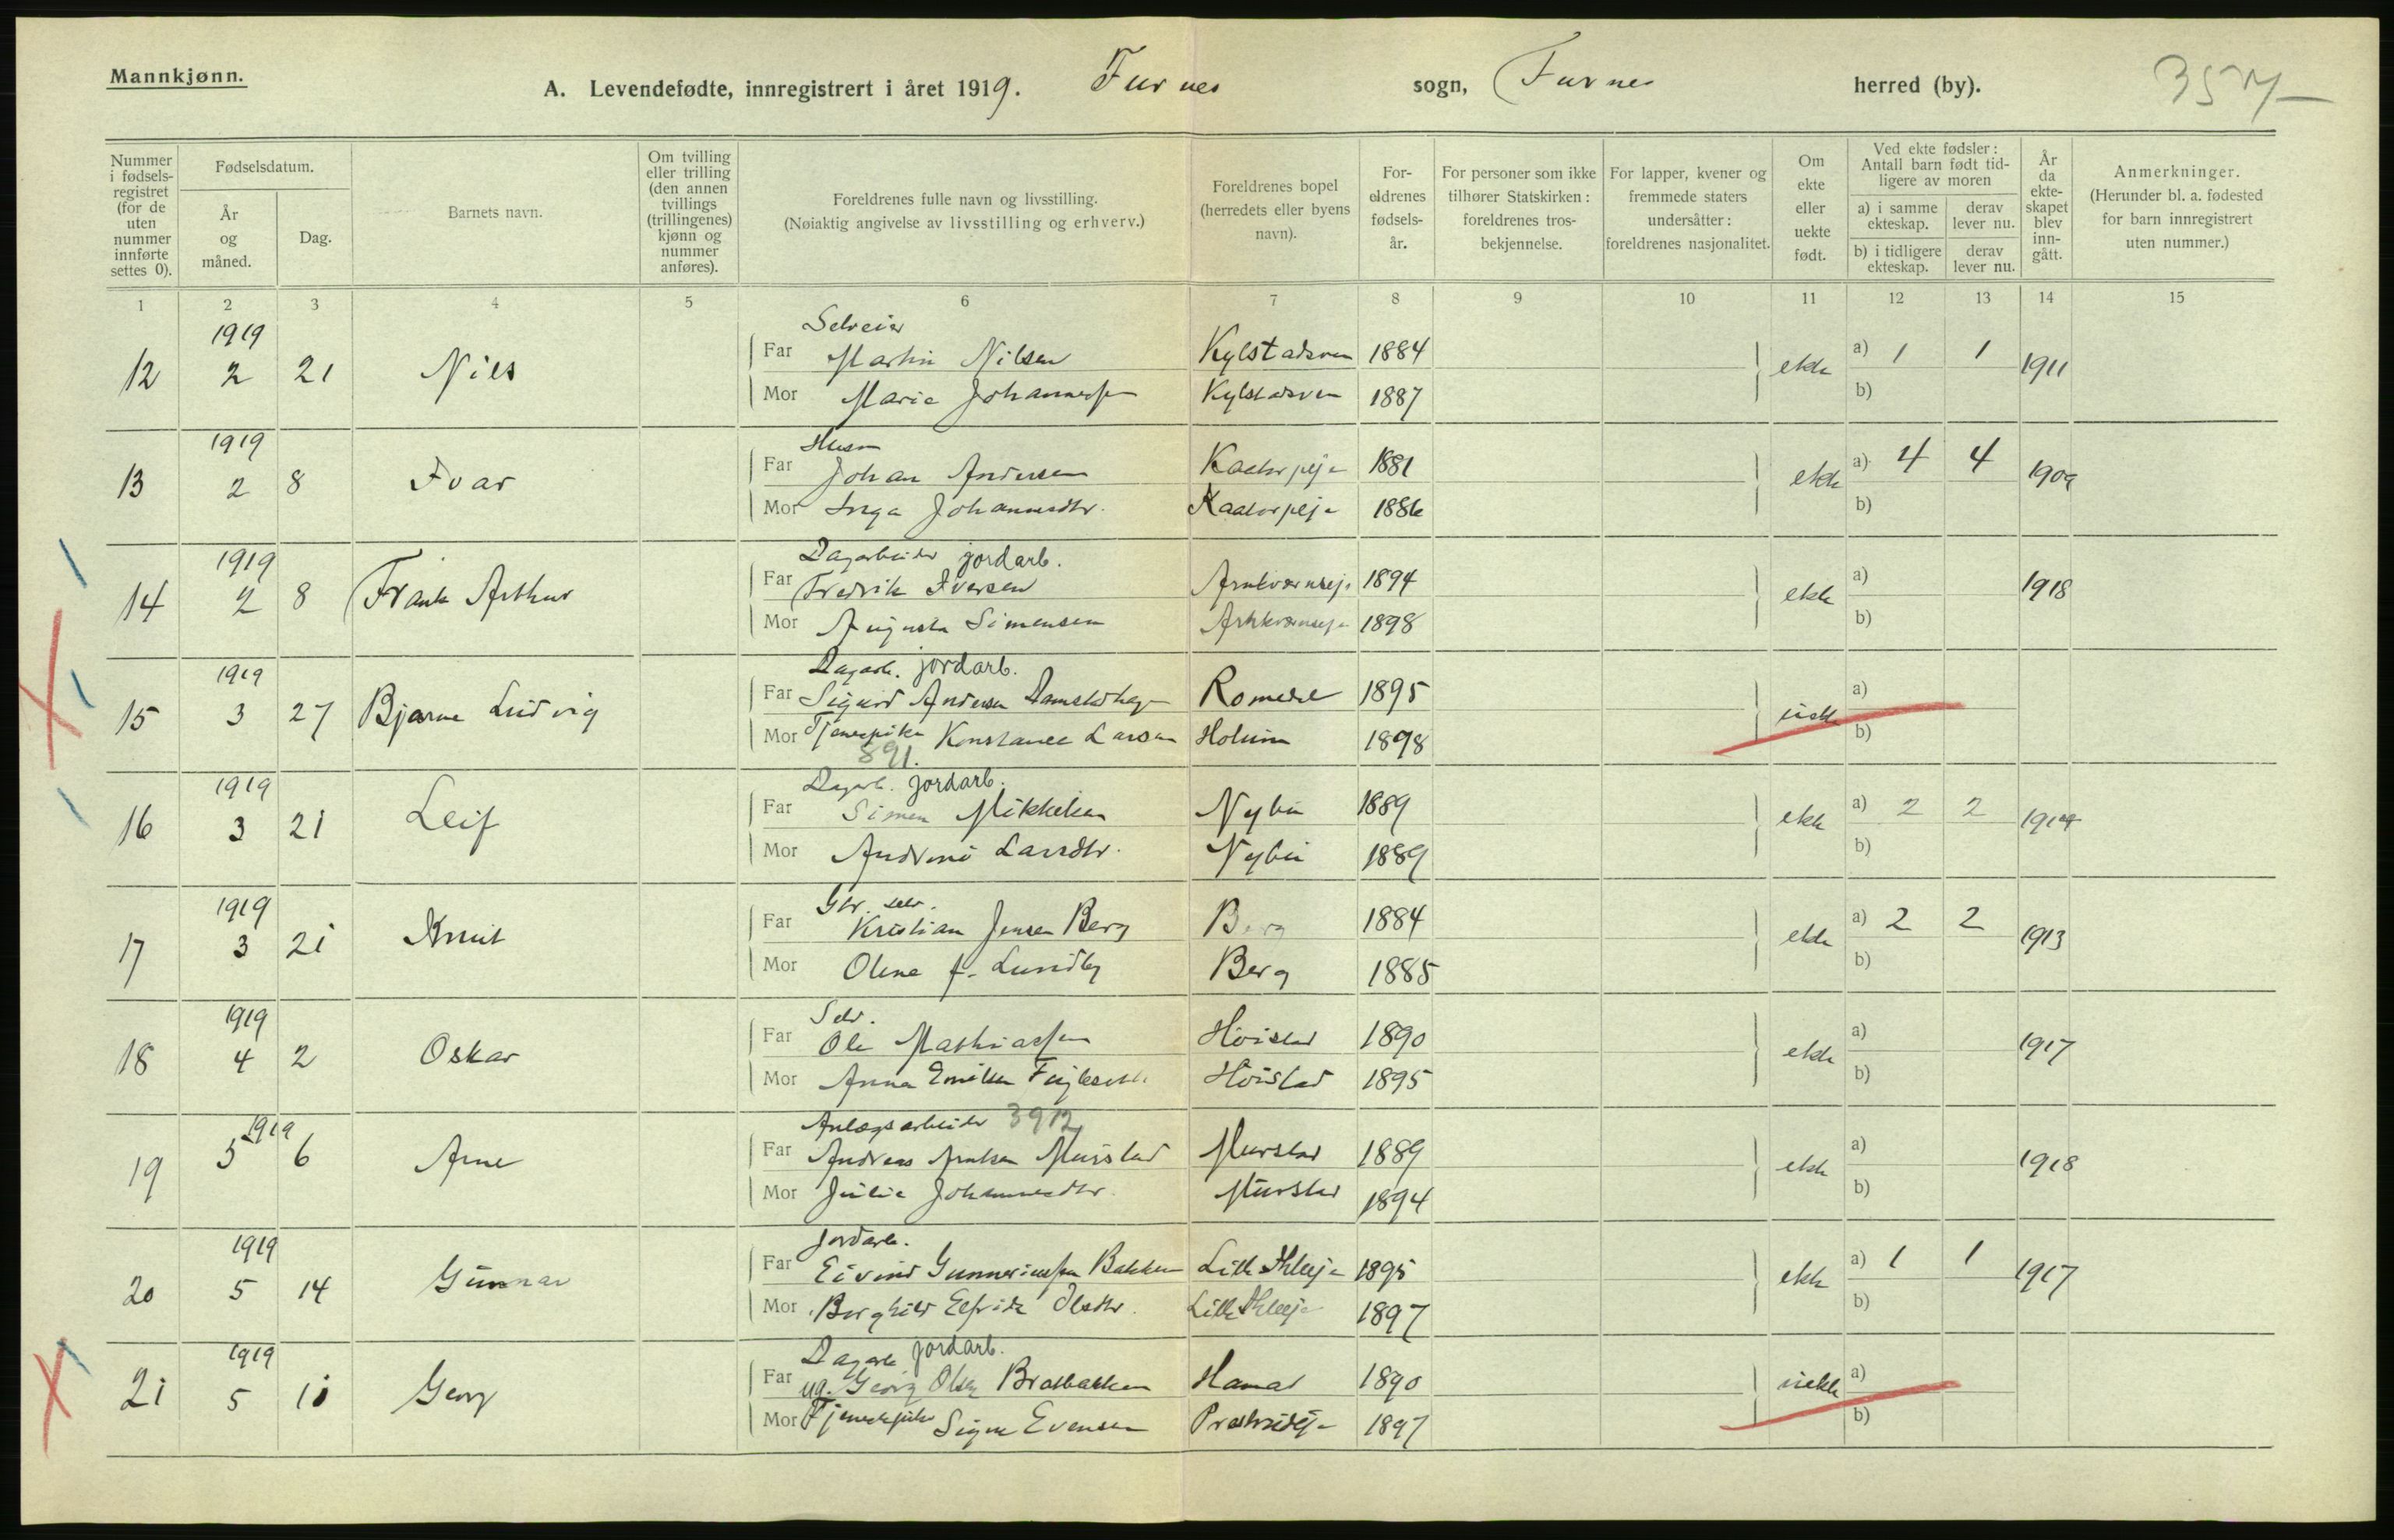 Mannkjønn.
A. Levendefødte, innregistrert i året 1919. Furnes sogn, Furnes herred (by).
Nummer i fødselsregistret (for de uten nummer innførte settes 0).
Fødselsdatum.
År og måned.
Dag.
Barnets navn.
Om tvilling eller trilling (den annen tvillings (trillingenes) kjønn og nummer anføres).
Foreldrenes fulle navn og livsstilling.
(Nøiaktig angivelse av livsstilling og erhverv.)
Foreldrenes bopel (herredets eller byens navn).
Foreldrenes fødselsår.
For personer som ikke tilhører Statskirken: foreldrenes trosbekjennelse.
For lapper, kvener og fremmede staters undersåtter: foreldrenes nasjonalitet.
Om ekte eller uekte født.
Ved ekte fødsler: Antall barn født tidligere av moren
a) i samme ekteskap. derav lever nu.
b) i tidligere ekteskap. derav lever nu.
År da ekteskapet blev inngått.
Anmerkninger.
(Herunder bl. a. fødested for barn innregistrert uten nummer.)
1 2 3 4 5 6 7 8 9 10 11 12 13 14 15
1919 Selveier
12 2 21 Nils Far Martin Nilsen Kylstadsven 1884 ekte a) 1 1 1911
Mor Marie Johannessen Kylstadsven 1887 b)
1919 Husm
13 2 8 Ivar Far Johan Andersen 1881 ekte a) 4 4 1909
Mor Inga Johannesdtr. 1886 b)
1919 Dagarbeider jordarb.
14 2 8 Frank Arthur Far Fredrik Iversen 1894 ekte a) 1918
Mor Augusta Simensen 1898 b)
1919 Dagarb. jordarb.
15 3 27 Bjarne Ludvig Far Sigurd Andersen Romedal 1895 uekte a)
Mor Tjenestepike Konstance Larsen 1898 b)
891.
1919 Dagarb. jordarb.
16 3 21 Leif Far Simen Mikkelsen Nybu 1889 ekte a) 2 2
Mor Larsdtr. Nybu 1889 b)
1919 Gbr. selv.
17 3 21 Knut Far Kristian Jensen Berg Berg 1884 ekte a) 2 2 1913
Mor Oline f. Lundby Berg 1885 b)
1919 Selv.
18 4 2 Oskar Far Ole Mathiassen Høistad 1890 ekte a) 1917
Mor Anna Høistad 1895 b)
1919 Anlægsarbeider 3912
19 5 6 Arne Far Andreas Murstad Murstad 1889 ekte a) 1918
Mor Julie Johannesdtr. Murstad 1894 b)
1919 Jordarb.
20 5 14 Gunnar Far Eivind Gunneriussen Bakken 1895 ekte a) 1 1 1917
Mor Borghild Elfrida Olsdtr. 1897 b)
1919 Dagarb jordarb.
21 5 10 Georg Far ug. Georg Olsen Bratbakken Hamar 1890 uekte a)
Mor Tjenestepike Signe Evensen 1897 b)